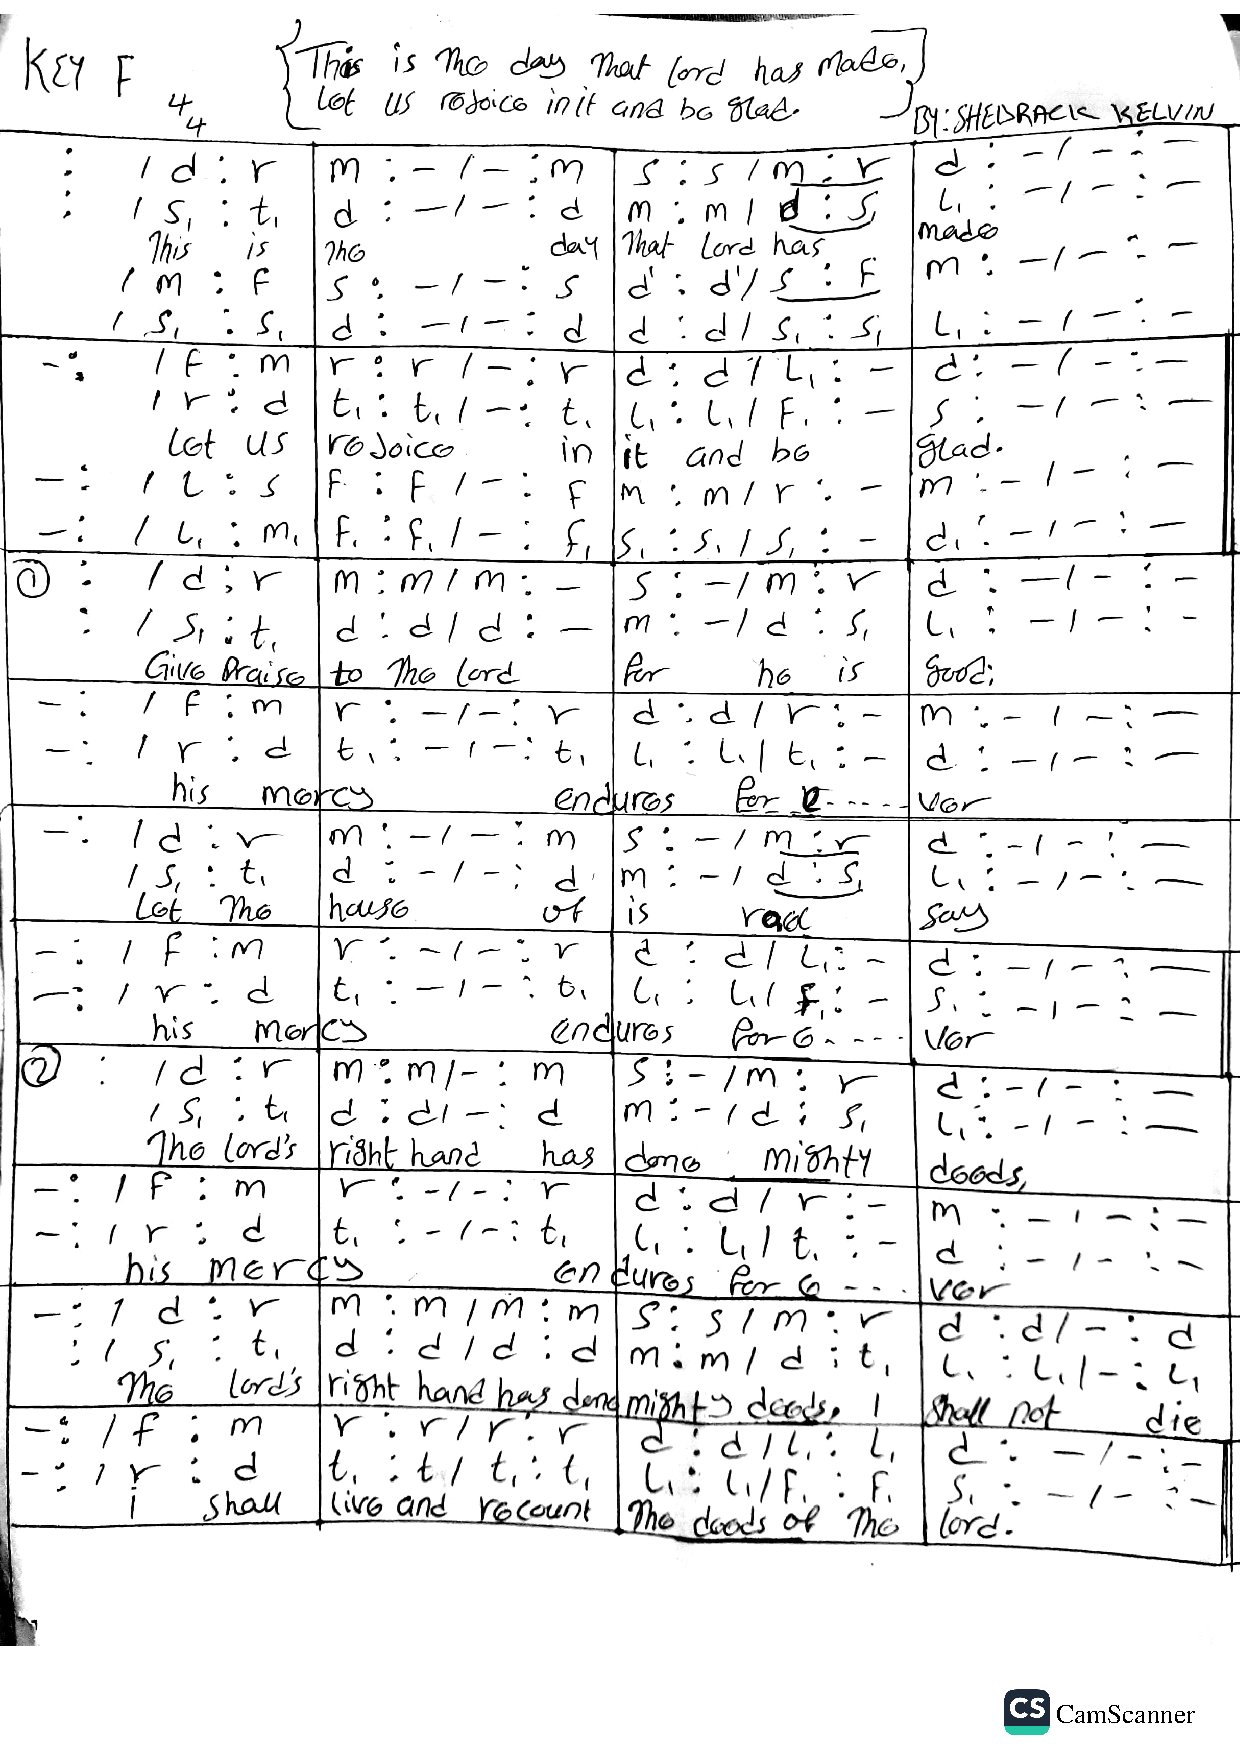 KEY F 4/4
{This is the day that lord has made,
let us rejoice in it and be glad.}
BY: SHEDRACK KELVIN
: / d : r | m : - / - : m | s : s / m : r | d : - / - : -
: / s₁ : t₁ | d : - / - : d | m : m / d : s₁ | l₁ : - / - : -
This is the day that lord has made
/ m : f | s : - / - : s | d' : d' / s : f | m : - / - : -
/ s₁ : s₁ | d : - / - : d | d : d / s₁ : s₁ | l₁ : - / - : -
- : / f : m | r : r / - : r | d : d / l₁ : - | d : - / - : -
/ r : d | t₁ : t₁ / - : t₁ | l₁ : l₁ / f₁ : - | s : - / - : -
let us rejoice in it and be glad.
- : / l : s | f : f / - : f | m : m / r : - | m : - / - : -
- : / l₁ : m₁ | f₁ : f₁ / - : f₁ | s₁ : s₁ / s₁ : - | d₁ : - / - : -
① : / d : r | m : m / m : - | s : - / m : r | d : - / - : -
: / s₁ : t₁ | d : d / d : - | m : - / d : s₁ | l₁ : - / - : -
Give praise to the lord for he is good;
- : / f : m | r : - / - : r | d : d / r : - | m : - / - : -
- : / r : d | t₁ : - / - : t₁ | l₁ : l₁ / t₁ : - | d : - / - : -
his mercy endures for e----- ver
- : / d : r | m : - / - : m | s : - / m : r | d : - / - : -
/ s₁ : t₁ | d : - / - : d | m : - / d : s₁ | l₁ : - / - : -
Let the house of is rael say
- : / f : m | r : - / - : r | d : d / l₁ : - | d : - / - : -
- : / r : d | t₁ : - / - : t₁ | l₁ : l₁ / f₁ : - | s₁ : - / - : -
his mercy endures for e----- ver
② : / d : r | m : m / - : m | s : - / m : r | d : - / - : -
/ s₁ : t₁ | d : d / - : d | m : - / d : s₁ | l₁ : - / - : -
The lord's right hand has done mighty deeds,
- : / f : m | r : - / - : r | d : d / r : - | m : - / - : -
- : / r : d | t₁ : - / - : t₁ | l₁ : l₁ / t₁ : - | d : - / - : -
his mercy endures for e---- ver
- : / d : r | m : m / m : m | s : s / m : r | d : d / - : d
: / s₁ : t₁ | d : d / d : d | m : m / d : t₁ | l₁ : l₁ / - : l₁
The lord's right hand has done mighty deeds, I shall not die
- : / f : m | r : r / r : r | d : d / l₁ : l₁ | d : - / - : -
- : / r : d | t₁ : t / t₁ : t₁ | l₁ : l₁ / f₁ : f₁ | s₁ : - / - : -
i shall live and recount the deeds of the lord.
CS CamScanner